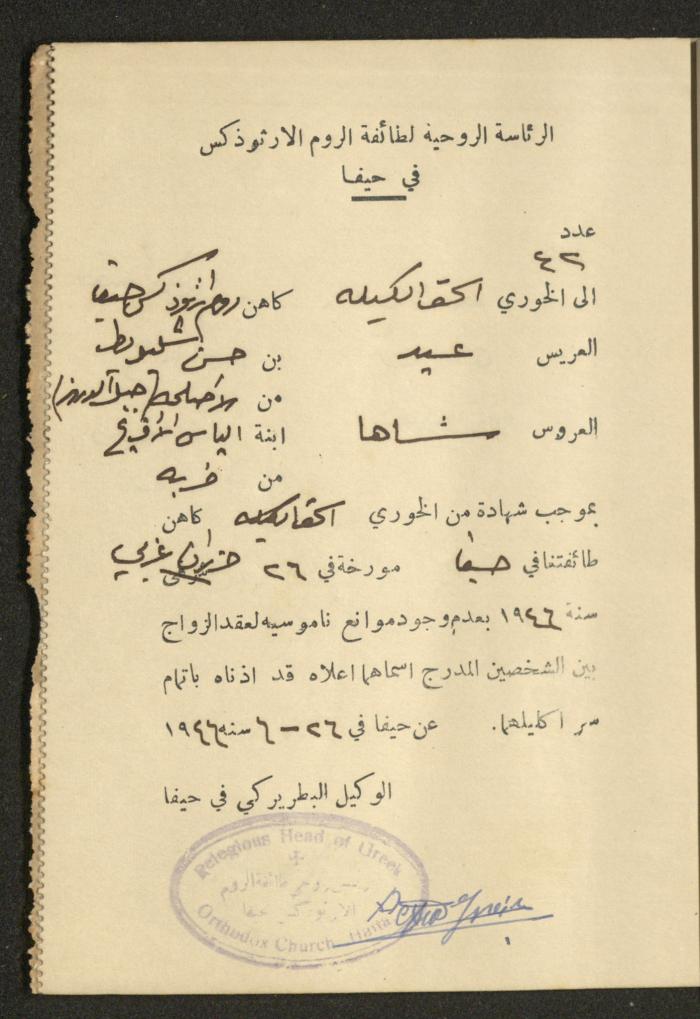 الرئاسة الروحية لطائفة الروم الارثوذكس
في حيفا
عدد
٤٢
الى الخوري اسحق الكيله كاهن روم ارثوذكس حيفا
العريس عيد بن حسن
من (جبل الدروز)
العروس شاها ابنة الياس
من خربه
بموجب شهادة من الخوري اسحق الكيله كاهن
طائفتنا في حيفا مورخة في ٢٦ حزيران غربي
سنة ١٩٤٦ بعدم وجود موانع ناموسيه لعقد الزواج
بين الشخصين المدرج اسماهما اعلاه قد اذناه باتمام
سر اكليلهما. عن حيفا في ٢٦ - ٦ سنه ١٩٤٦
الوكيل البطريركي في حيفا
Relegious Head of Greek
رئيس روحي طائفة الروم
الارثوذكس حيفا
Orthodox Church Haifa